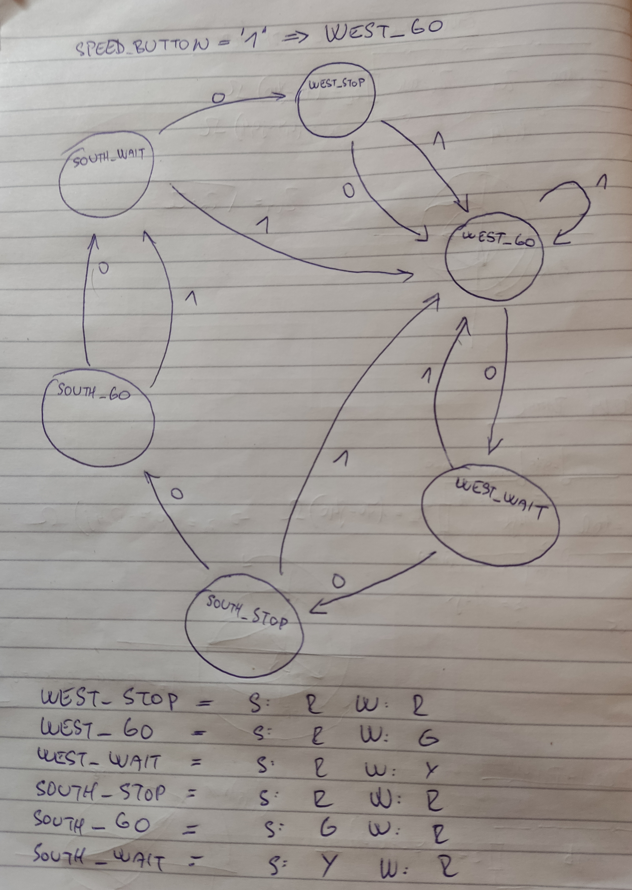 SPEED_BUTTON = '1' => WEST_GO
WEST_STOP
0
SOUTH_WAIT
1
0
1
1
WEST_GO
0
1
1
0
SOUTH_GO
1
WEST_WAIT
0
0
SOUTH_STOP
WEST_STOP = S: R W: R
WEST_GO = S: R W: G
WEST_WAIT = S: R W: Y
SOUTH_STOP = S: R W: R
SOUTH_GO = S: G W: R
SOUTH_WAIT = S: Y W: R